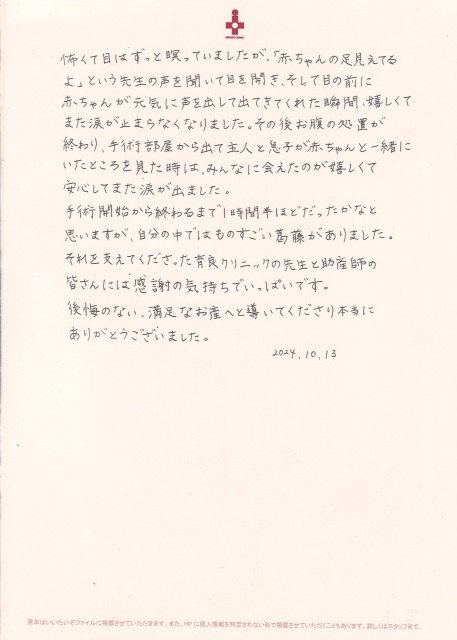 怖くて目はずっと瞑っていましたが、「赤ちゃんの足見えてる
よ」という先生の声を聞いて目を開き、そして目の前に
赤ちゃんが元気に声を出して出てきてくれた瞬間、嬉しくて
また涙が止まらなくなりました。その後お腹の処置が
終わり、手術部屋から出て主人と息子が赤ちゃんと一緒に
いたところを見た時は、みんなに会えたのが嬉しくて
安心してまた涙が出ました。
手術開始から終わるまで1時間半ほどだったかなと
思いますが、自分の中ではものすごい葛藤がありました。
それを支えてくださった育良クリニックの先生と助産師の
皆さんには感謝の気持ちでいっぱいです。
後悔のない、満足なお産へと導いてくださり本当に
ありがとうございました。
2024.10.13
原本はいいたいぞファイルに掲載させていただきます。また、HPに個人情報を特定されない形で掲載させていただくこともあります。詳しくはスタッフまで。